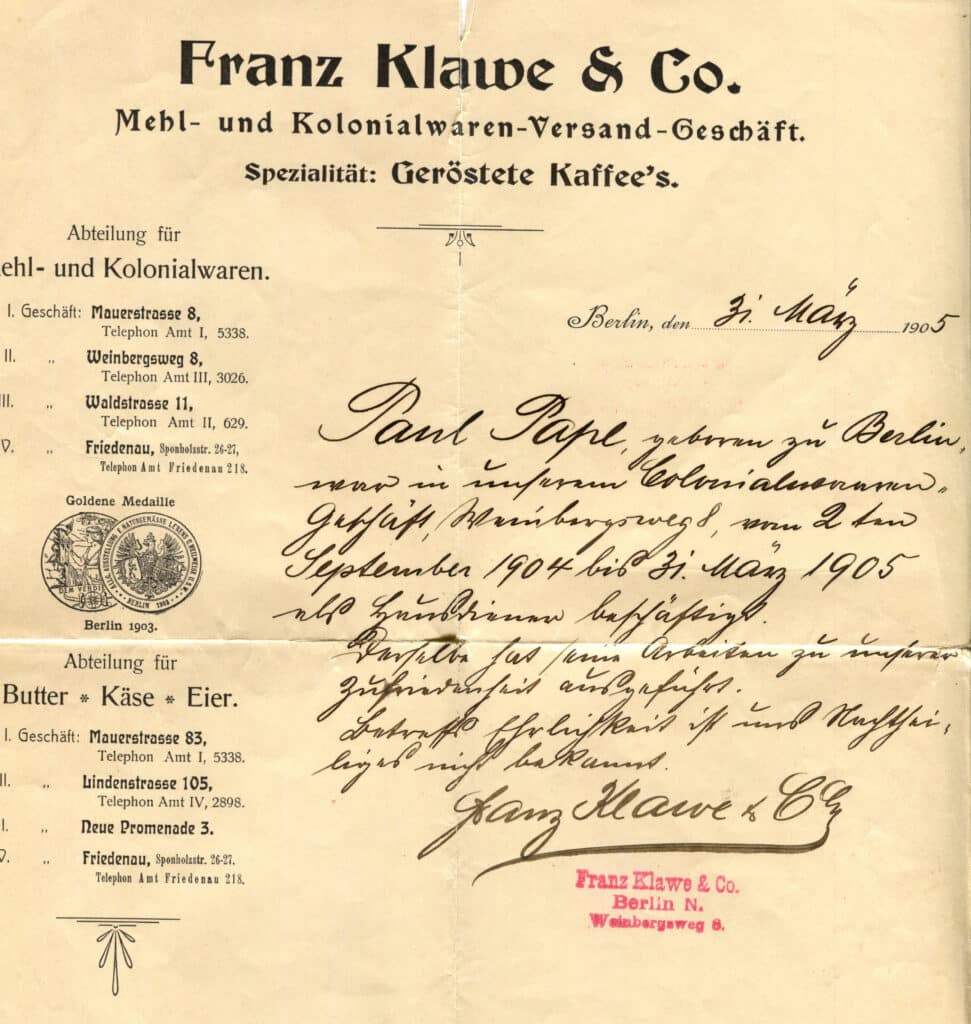 Franz Klawe & Co.
Mehl- und Kolonialwaren-Versand-Geschäft.
Spezialität: Geröstete Kaffee's.
Abteilung für
ehl- und Kolonialwaren.
I. Geschäft: Mauerstrasse 8,
Telephon Amt I, 5338.
II. „ Weinbergsweg 8,
Telephon Amt III, 3026.
II. „ Waldstrasse 11,
Telephon Amt II, 629.
V. „ Friedenau, Sponholzstr. 26-27,
Telephon Amt Friedenau 218.
Goldene Medaille
BERLIN 1903
Berlin 1903.
Abteilung für
Butter * Käse * Eier.
I. Geschäft: Mauerstrasse 83,
Telephon Amt I, 5338.
II. „ Lindenstrasse 105,
Telephon Amt IV, 2898.
I. „ Neue Promenade 3.
V. „ Friedenau, Sponholzstr. 26-27.
Telephon Amt Friedenau 218.
Berlin, den 31. März 1905
Paul Pape, geboren zu Berlin,
war in unserem Colonialwaaren-
Geschäft, Weinbergsweg 8, vom 2 ten
September 1904 bis 31. März 1905
als Hausdiener beschäftigt.
Derselbe hat seine Arbeiten zu unserer
Zufriedenheit ausgeführt.
Betreffs Ehrlichkeit ist uns Nachthei-
liges nicht bekannt.
Franz Klawe & Co
Franz Klawe & Co.
Berlin N.
Weinbergsweg 8.